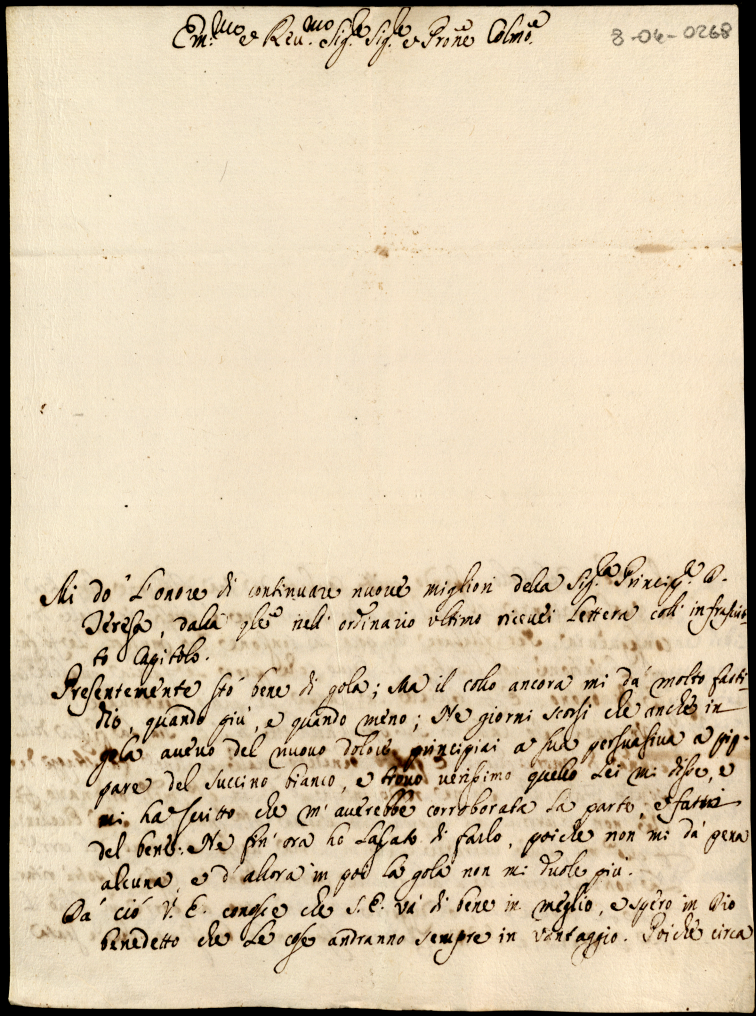 Em.mo e Reu.mo Sig.e Sig.e e Prone Colmo.
8-04-0268
Mi do L'onore di continuare nuoue migliori della Sig.ra Princip.e D.
Teresa, dalla qle nell' ordinario ultimo riceuei Lettera coll' infrascrit-
to Capitolo.
Presentemente stó bene di gola; Ma il collo ancora mi dá molto fasti-
dio, quando piú, e quando meno; Ne giorni scorsi che anche in
gola aueuo del nuouo dolore principiai a sua persuasiua a pip-
pare del succino bianco, e trouo uerissimo quello Lei mi disse, e
mi ha scritto che m' auerebbe corroborata La parte, e fattmi
del bene: Ne fin' ora ho Lasciato di farlo, poiche non mi dá pena
alcuna, e d' allora in poi La gola non mi duole piú.
Da ció V. E. conosce che S. E. vá di bene in meglio, e spero in Dio
benedetto che Le cose andranno sempre in vantaggio. Poiche circa